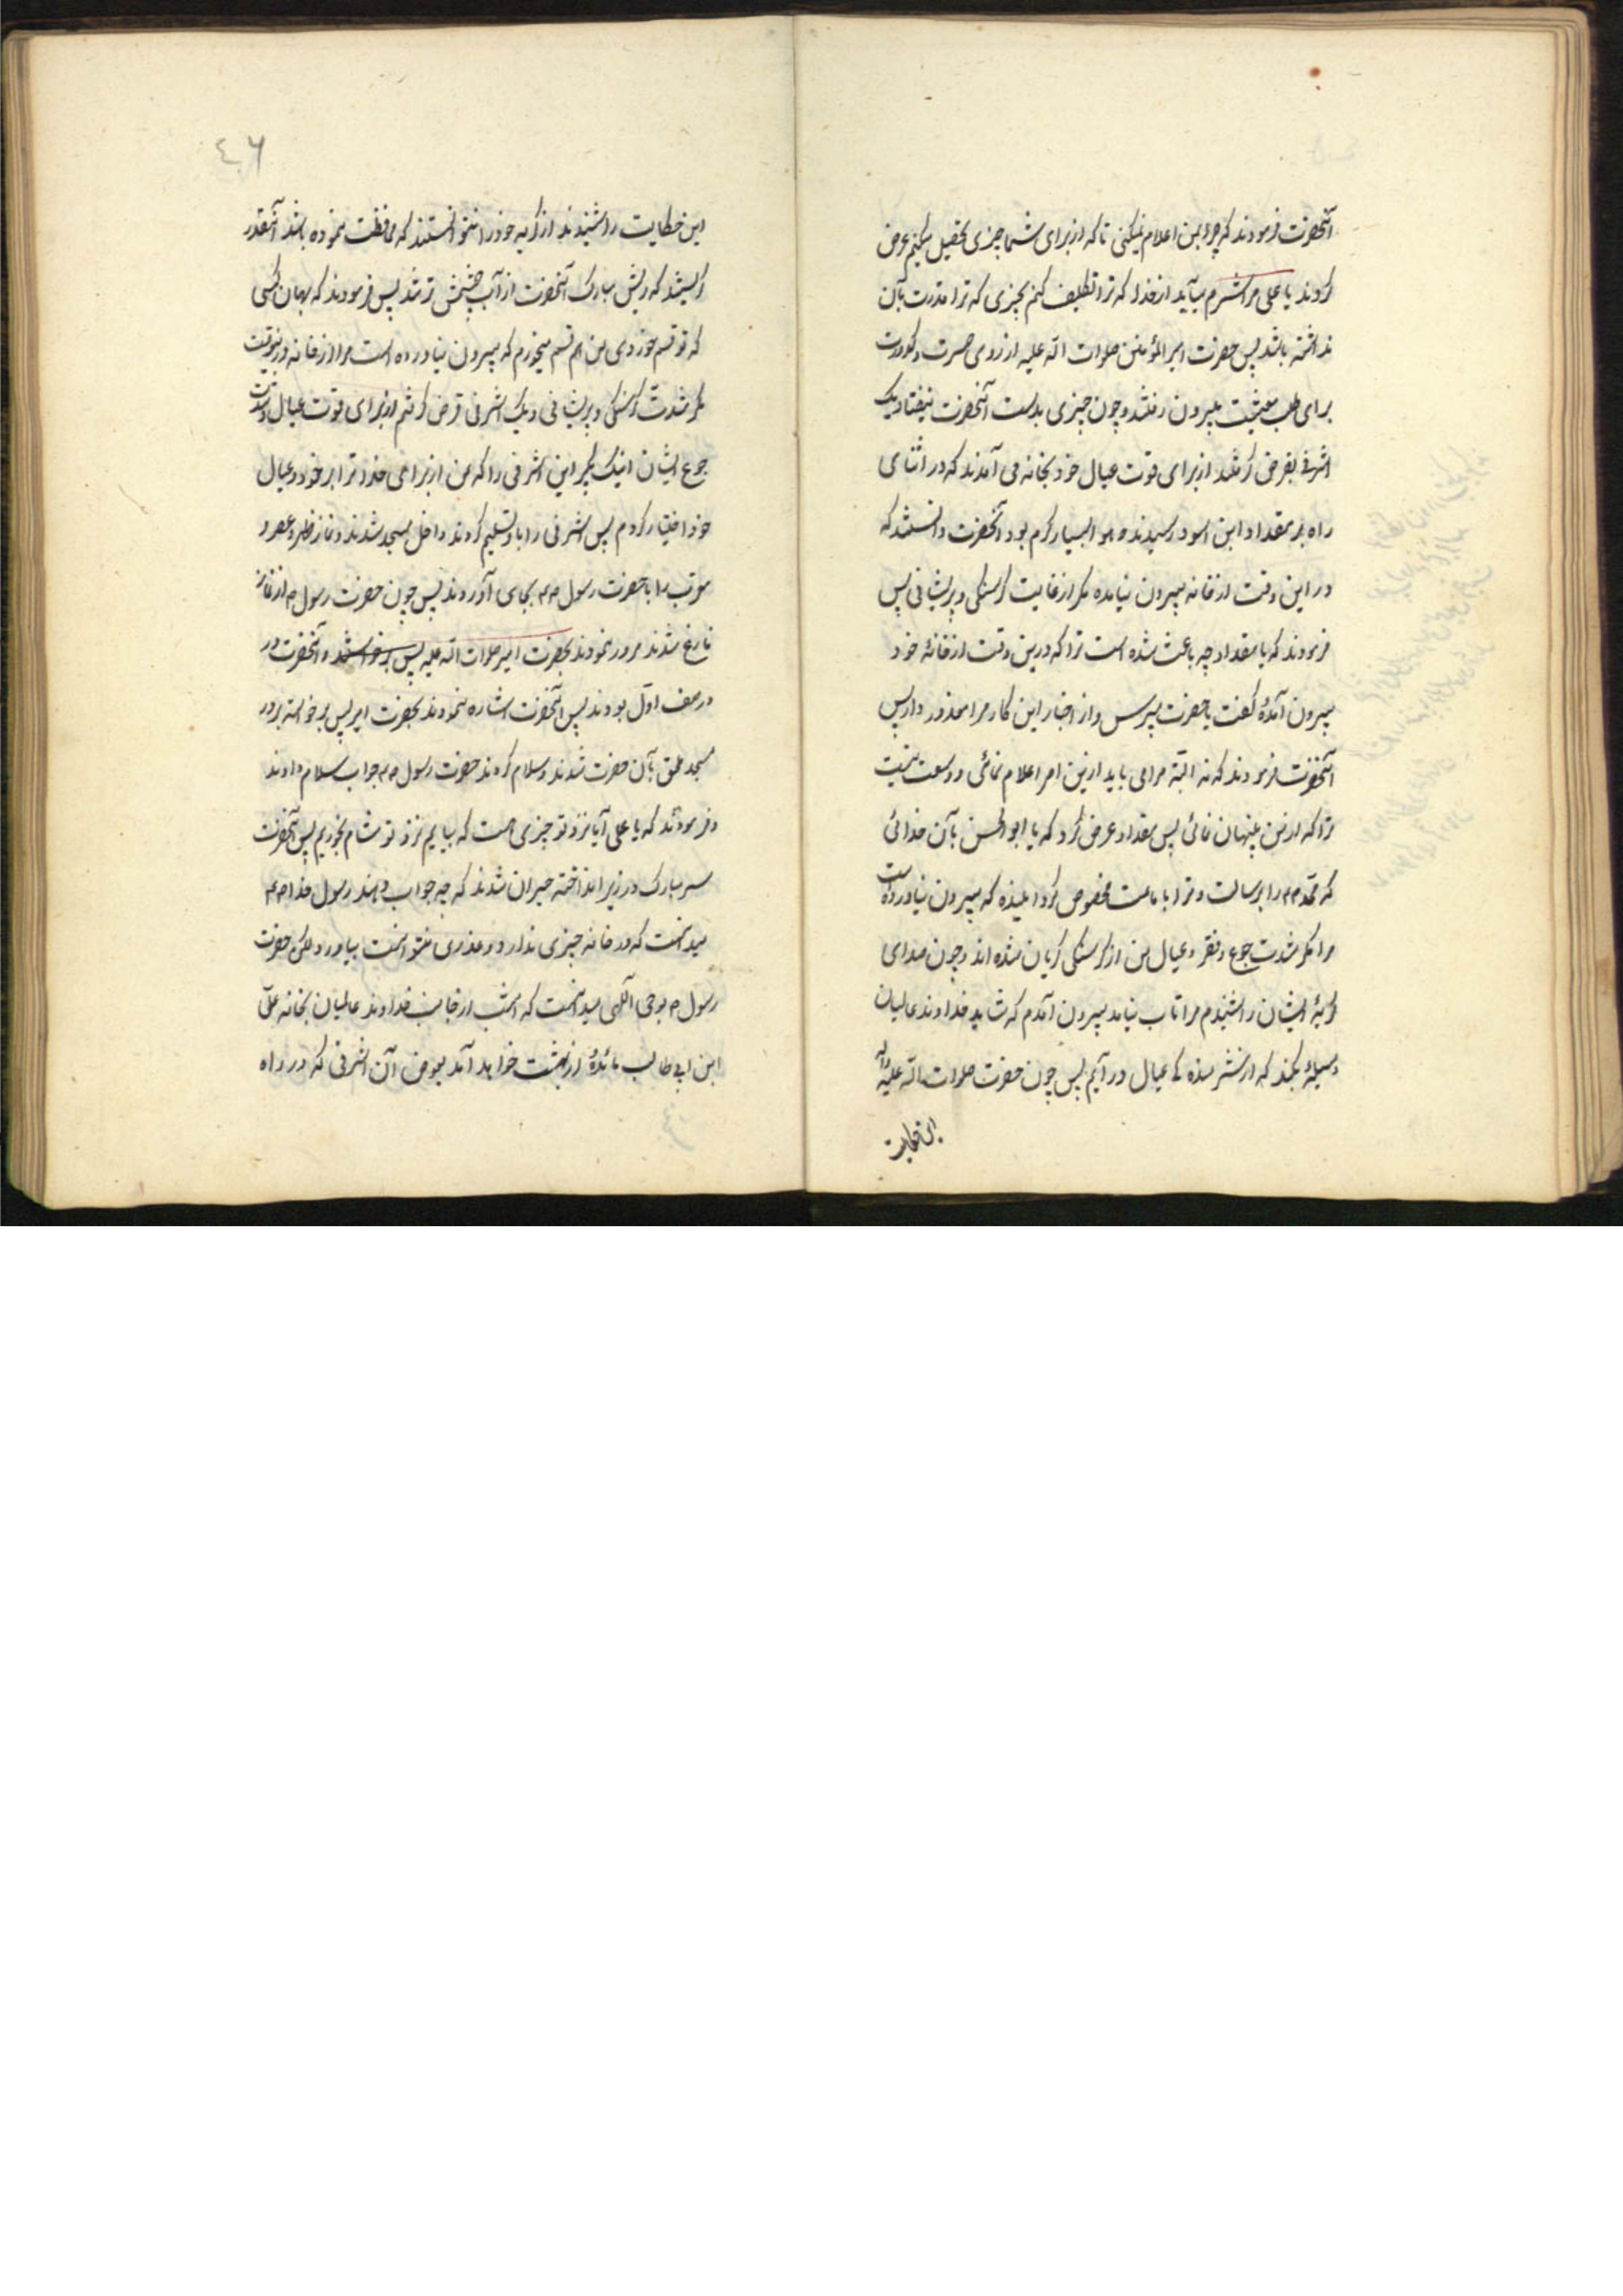 آنحضرت فرمودند که چرا بمن اعلام نمیکنی تا که از برای شما چیزی تحصیل میکنم عرض
کردند یا علی مرا شرم میآید از خدا که ترا تکلیف کنم بچیزی که ترا قدرت بآن
نداشته باشد پس حضرت امیر المؤمنین صلوات الله علیه از روی حسرت و کدورت
برای طلب معیشت بیرون رفتند و چون چیزی بدست آنحضرت نیفتاد یک
اشرفی بقرض گرفتند از برای قوت عیال خود بخانه می آمدند که در اثنای
راه بر مقداد ابن اسود رسیدند و هوا بسیار گرم بود آنحضرت دانستند که
در این وقت از خانه بیرون نیامده مگر از غایت گرسنگی و پریشانی پس
فرمودند که یا مقداد چه باعث شده است ترا که درین وقت از خانهٔ خود
بیرون آمدهٔ گفت یا حضرت مپرس و از اخبار این کار مرا معذور دار پس
آنحضرت فرمودند که نه البته مرا می باید ازین امر اعلام نمائی و وسعت نیست
ترا که از من پنهان نمائی پس مقداد عرض کرد که یا ابو الحسن بآن خدائی
که محمد صم را برسالت و ترا بامامت مخصوص کردانیده که بیرون نیاورده است
مرا مگر شدت جوع و فقر و عیال من از گرسنگی گریان شده اند و چون صدای
گریهٔ ایشان را شنیدم مرا تاب نیامد بیرون آمدم که شاید خداوند عالمیان
وسیلهٔ بکند که از شرمنده کی عیال در آیم پس چون حضرت صلوات الله علیه وآله
این حکایت
٤٠٦
این حکایت را شنیدند از گریه خود را نتوانستند که محافظت نموده باشد آنقدر
گریستند که ریش مبارک آنحضرت از آب چشمش تر شد پس فرمودند که بهمان کسی
که تو قسم خوردی من هم قسم میخورم که بیرون نیاورده است مرا از خانه درینوقت
مگر شدت گرسنگی و پریشانی و یک اشرفی قرض کرفتم از برای قوت عیال و شدت
جوع ایشان اینک بگیر این اشرفی را که من از برای خدا ترا بر خود و عیال
خود اختیار کردم پس اشرفی را باو تسلیم کردند و داخل مسجد شدند و نماز ظهر و عصر و
مغرب را با حضرت رسول صم بجای آوردند پس چون حضرت رسول ص از نماز
فارغ شدند مرور نمودند بحضرت امیر صلوات الله علیه پس برخواستند و آنحضرت در
در صف اول بودند پس آنحضرت اشاره نمودند بحضرت امیر پس برخواسته بر در
مسجد ملحق بآن حضرت شدند و سلام کردند حضرت رسول صم جواب سلام دادند
و فرمودند که یا علی آیا نزد تو چیزی هست که بیایم نزد تو شام بخوریم پس آنحضرت
سر مبارک در زیر انداخته حیران شدند که چه جواب دهند رسول خدا صم
میدانست که در خانه چیزی ندارد و عذری نتوانست بیاورد ولکن حضرت
رسول ص بوحی الهی میدانست که امشب از جانب خداوند عالمیان بخانه علی
ابن ابی طالب مائدهٔ از بهشت خواهد آمد بعوض آن اشرفی که در راه